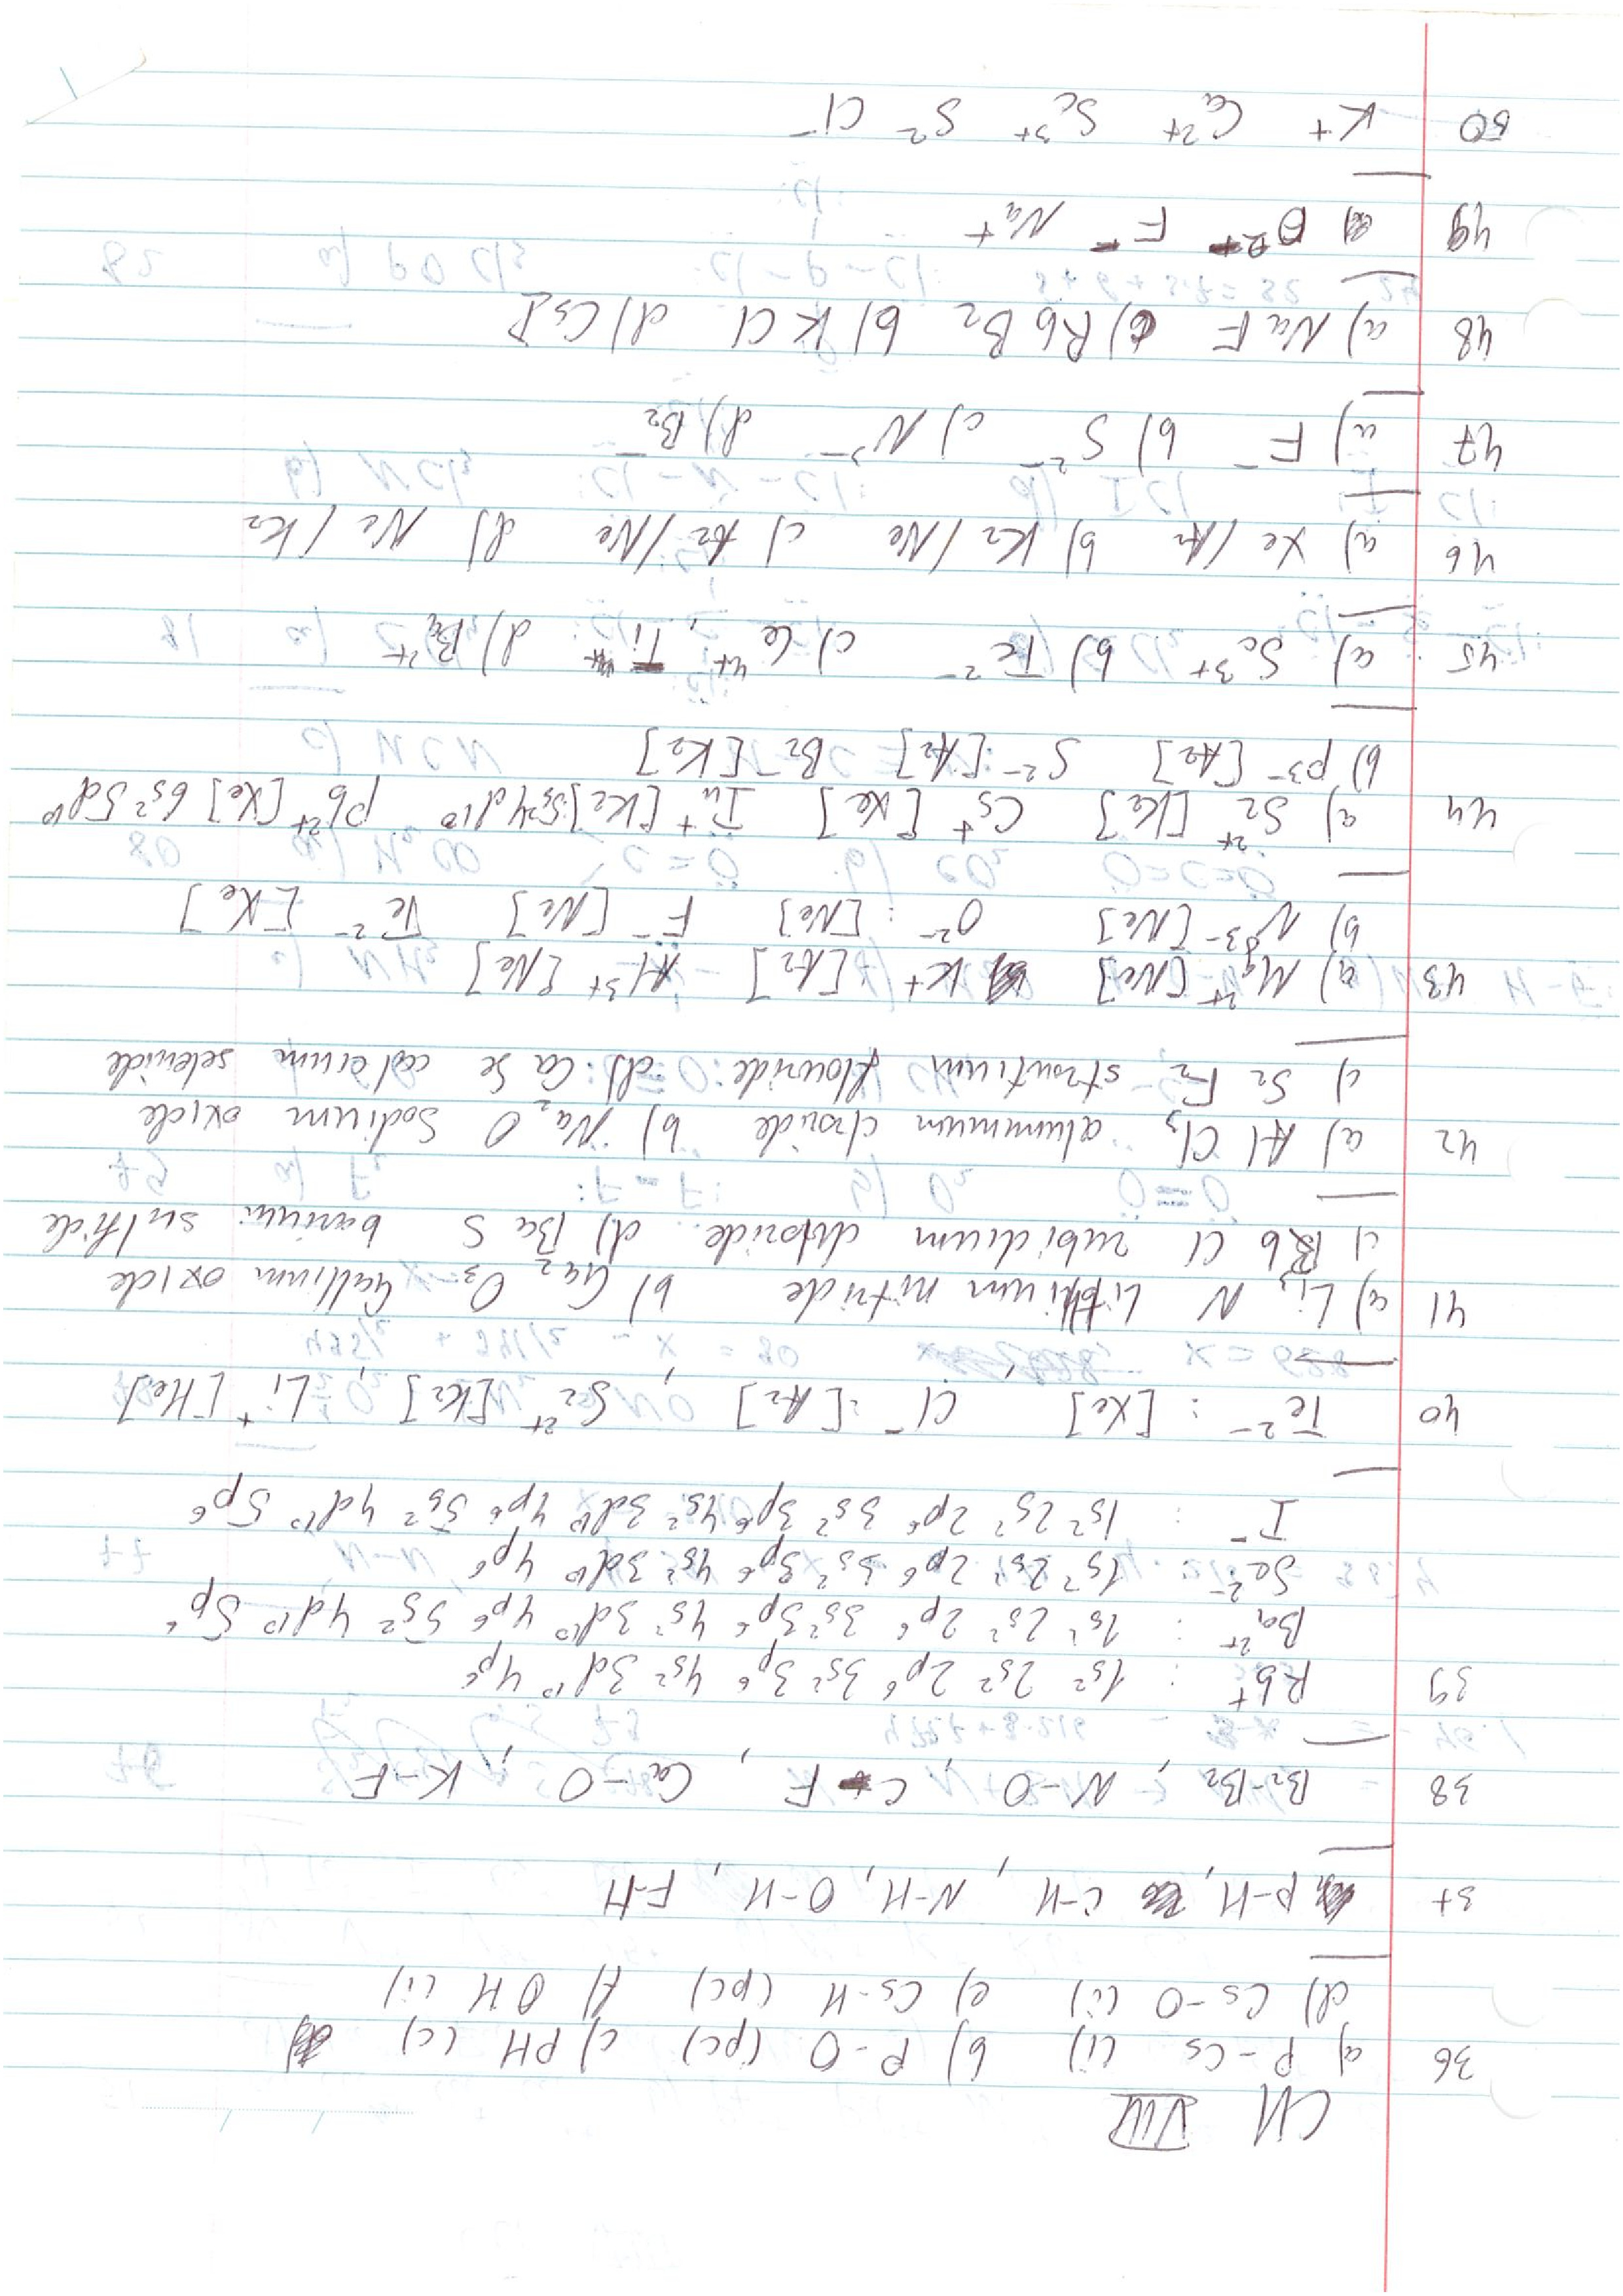 CH VIII
36 a) P-Cs (i) b) P-O (pc) c) PH (c)
d) Cs-O (i) e) Cs-H (pc) f) OH (i)
37 P-H, C-H, N-H, O-H, F-H
38 Br-Br, N-O, C-F, Ca-O, K-F
39 Rb⁺ : 1s² 2s² 2p⁶ 3s² 3p⁶ 4s² 3d¹⁰ 4p⁶
Ba²⁺ : 1s² 2s² 2p⁶ 3s² 3p⁶ 4s² 3d¹⁰ 4p⁶ 5s² 4d¹⁰ 5p⁶
Se²⁻ : 1s² 2s² 2p⁶ 3s² 3p⁶ 4s² 3d¹⁰ 4p⁶
I⁻ : 1s² 2s² 2p⁶ 3s² 3p⁶ 4s² 3d¹⁰ 4p⁶ 5s² 4d¹⁰ 5p⁶
40 Te²⁻ : [Xe] Cl⁻ : [Ar], Sr²⁺ [Kr], Li⁺ [He]
41 a) Li₃ N Lithium nitride b) Ga₂ O₃ Gallium oxide
c) Rb Cl rubidium chloride. d) Ba S barium sulfide
42 a) Al Cl₃ aluminum chloride b) Na₂ O Sodium oxide
c) Sr F₂ strontium flouride d) Ca Se calcium selenide
43 a) Mg²⁺ [Ne] K⁺ [Ar] Al³⁺ [Ne]
b) N³⁻ [Ne] O²⁻ : [Ne] F⁻ [Ne] Te²⁻ [Xe]
44 a) Sr²⁺ [Kr] Cs⁺ [Xe] In⁺ [Kr] 5s²4d¹⁰ Pb²⁺ [Xe] 6s² 5d¹⁰
b) P³⁻ [Ar] S²⁻ [Ar] Br⁻ [Kr]
45 a) Sc³⁺ b) Te²⁻ c) Ce⁴⁺, Ti⁴⁺ d) Ba²⁺
46 a) Xe / Ar b) Kr / Ne c) Ar / Ne d) Ne / Kr
47 a) F⁻ b) S²⁻ c) N³⁻ d) Br⁻
48 a) Na F c) Rb Br b) K Cl d) Cs I
49 F⁻ Na⁺
50 K⁺ Ca²⁺ Sc³⁺ S²⁻ Cl⁻